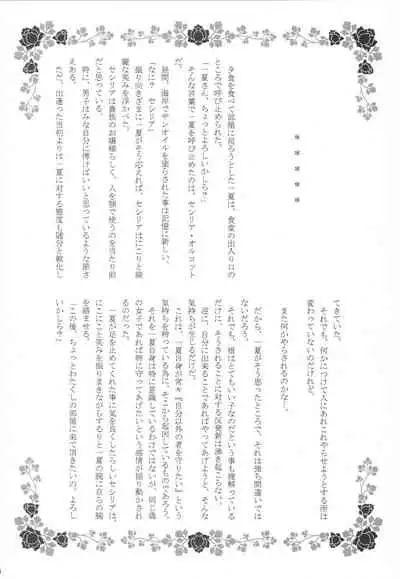 夕食を食べて部屋に戻ろうとした一夏は、食堂の出入り口の
ところで呼び止められた。
「一夏さん、ちょっとよろしいかしら?」
そんな言葉で一夏を呼び止めたのは、セシリア・オルコット
だった。
昼間、海岸でサンオイルを塗らされた事は記憶に新しい。
「なに? セシリア」
振り向きざまに一夏がそう応えれば、セシリアはにこりと綺
麗な笑みを浮かべた。
セシリアは貴族のお嬢様らしく、人を顎で使うのを当たり前
だと思っている。
特に、男子はみな自分に傅けばいいと思っているような節さ
えある。
ただ、出逢った当初よりは一夏に対する態度も随分と軟化し
てきていた。
それでも、何かにつけて人にあれこれやらせようとする所は
変わっていないのだけれど。
また何かやらされるのかな。
だから、一夏がそう思ったところで、それは強ち間違いでは
ないだろう。
それでも、根はとてもいい子なのだという事も理解っている
だけに、そうされることに対する反発新は湧き起こらない。
逆に、自分に出来ることであればやってあげようと、そんな
気持ちが生じるだけだ。
これは、一夏自身が常々『自分以外の者を守りたい』という
気持ちを持っている為に、そこから起因しているものだった。
それを一夏自身は特に意識しているわけではないが、同じ歳
の女子であれば特に守ってあげたいという感情が振り動かされ
るのだった。
一夏が足を止めてくれた事に気を良くしたらしいセシリアは、
にこにこと笑みを振りまきながらするりと一夏の腕に自らの腕
を絡ませる。
「この後、ちょっとわたくしの部屋に来て頂きたいの。よろし
いかしら?」